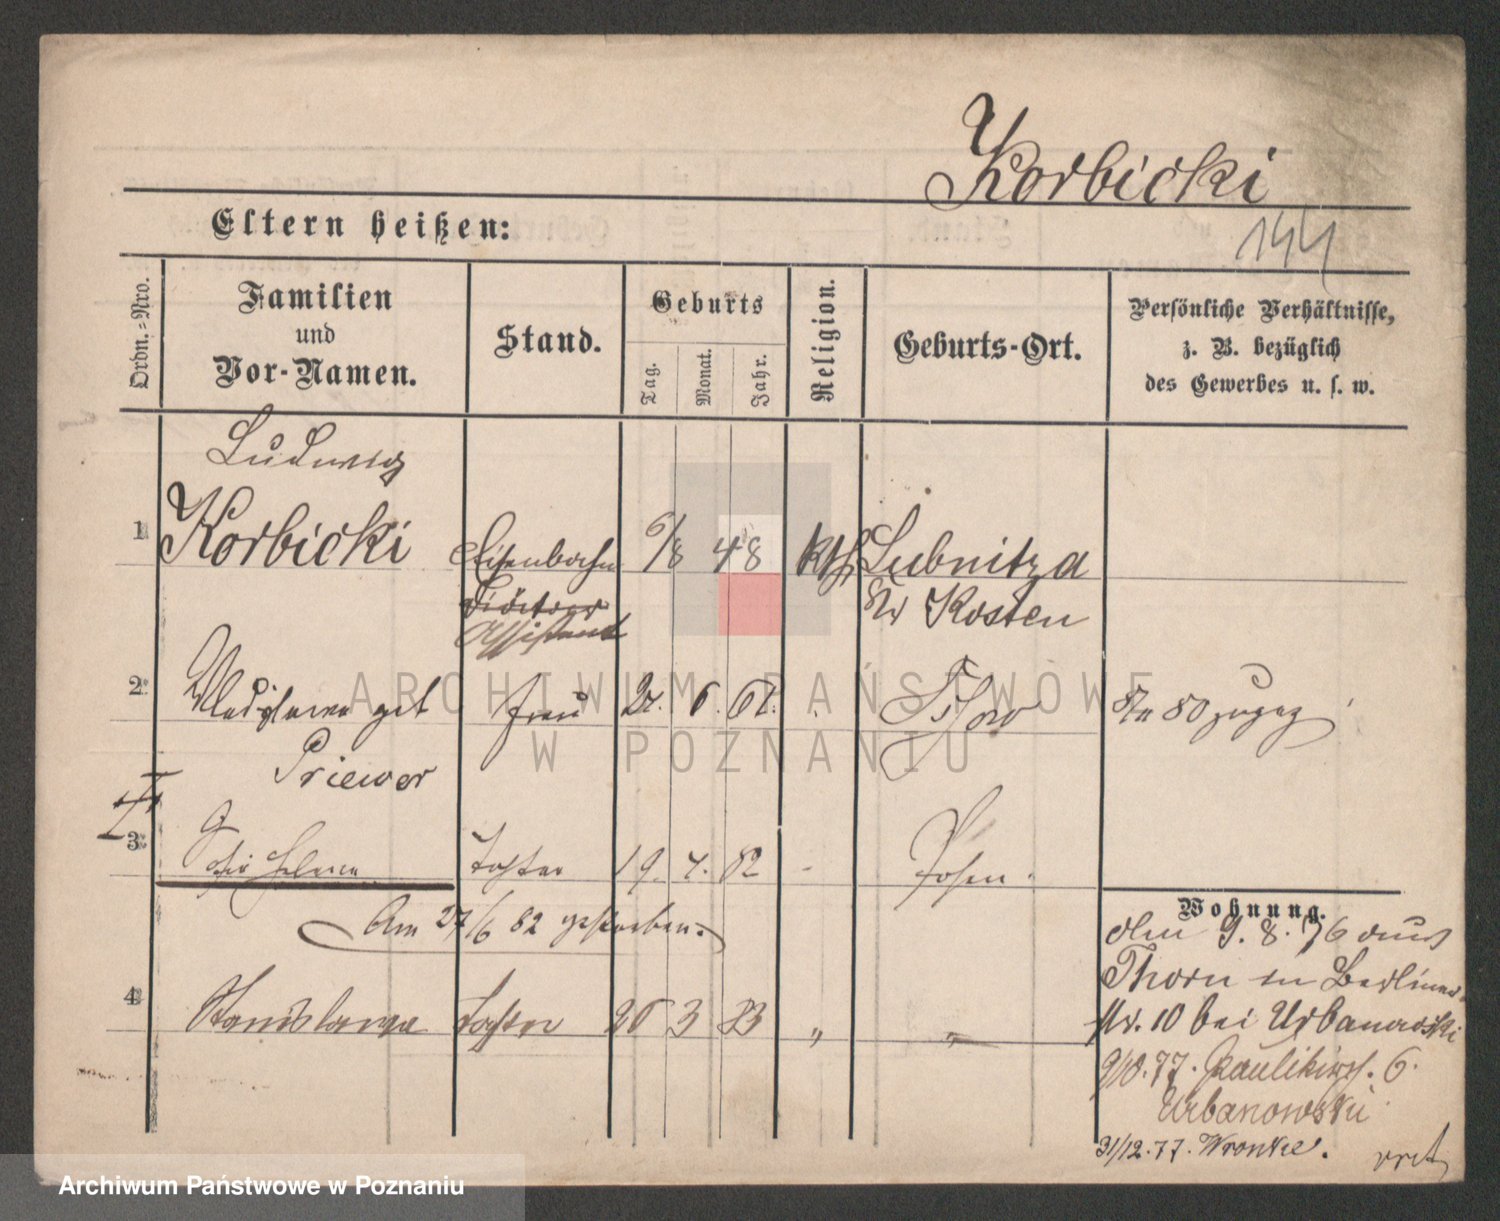 Korbicki
144
Eltern heißen:
Ordn.=Nro.
Familien
und
Vor-Namen.
Stand.
Geburts
Tag.
Monat.
Jahr.
Religion.
Geburts-Ort.
Persönliche Verhältnisse,
z. B. bezüglich
des Gewerbes u. s. w.
Ludwig
1. Korbicki Eisenbahn 6/8 48 kth Lubnitza
Diätar Kr Kosten
Assistent
2. Wladislawa geb Frau 24. 6. 61.
Priewer
3. Helena Tochter 19. 4. 82 - Posen.
Am 27/6 82 gestorben.
4. Stanislawa Tochter 26 3 83 " "
Wohnung.
den 9. 8. 76 aus
Thorn in Berliner
Nr. 10 bei Urbanowski
9/10.77. Paulikirch. 6.
Urbanowski
31/12.77. Wronke.
ARCHIWUM PAŃSTWOWE
W POZNANIU
Archiwum Państwowe w Poznaniu